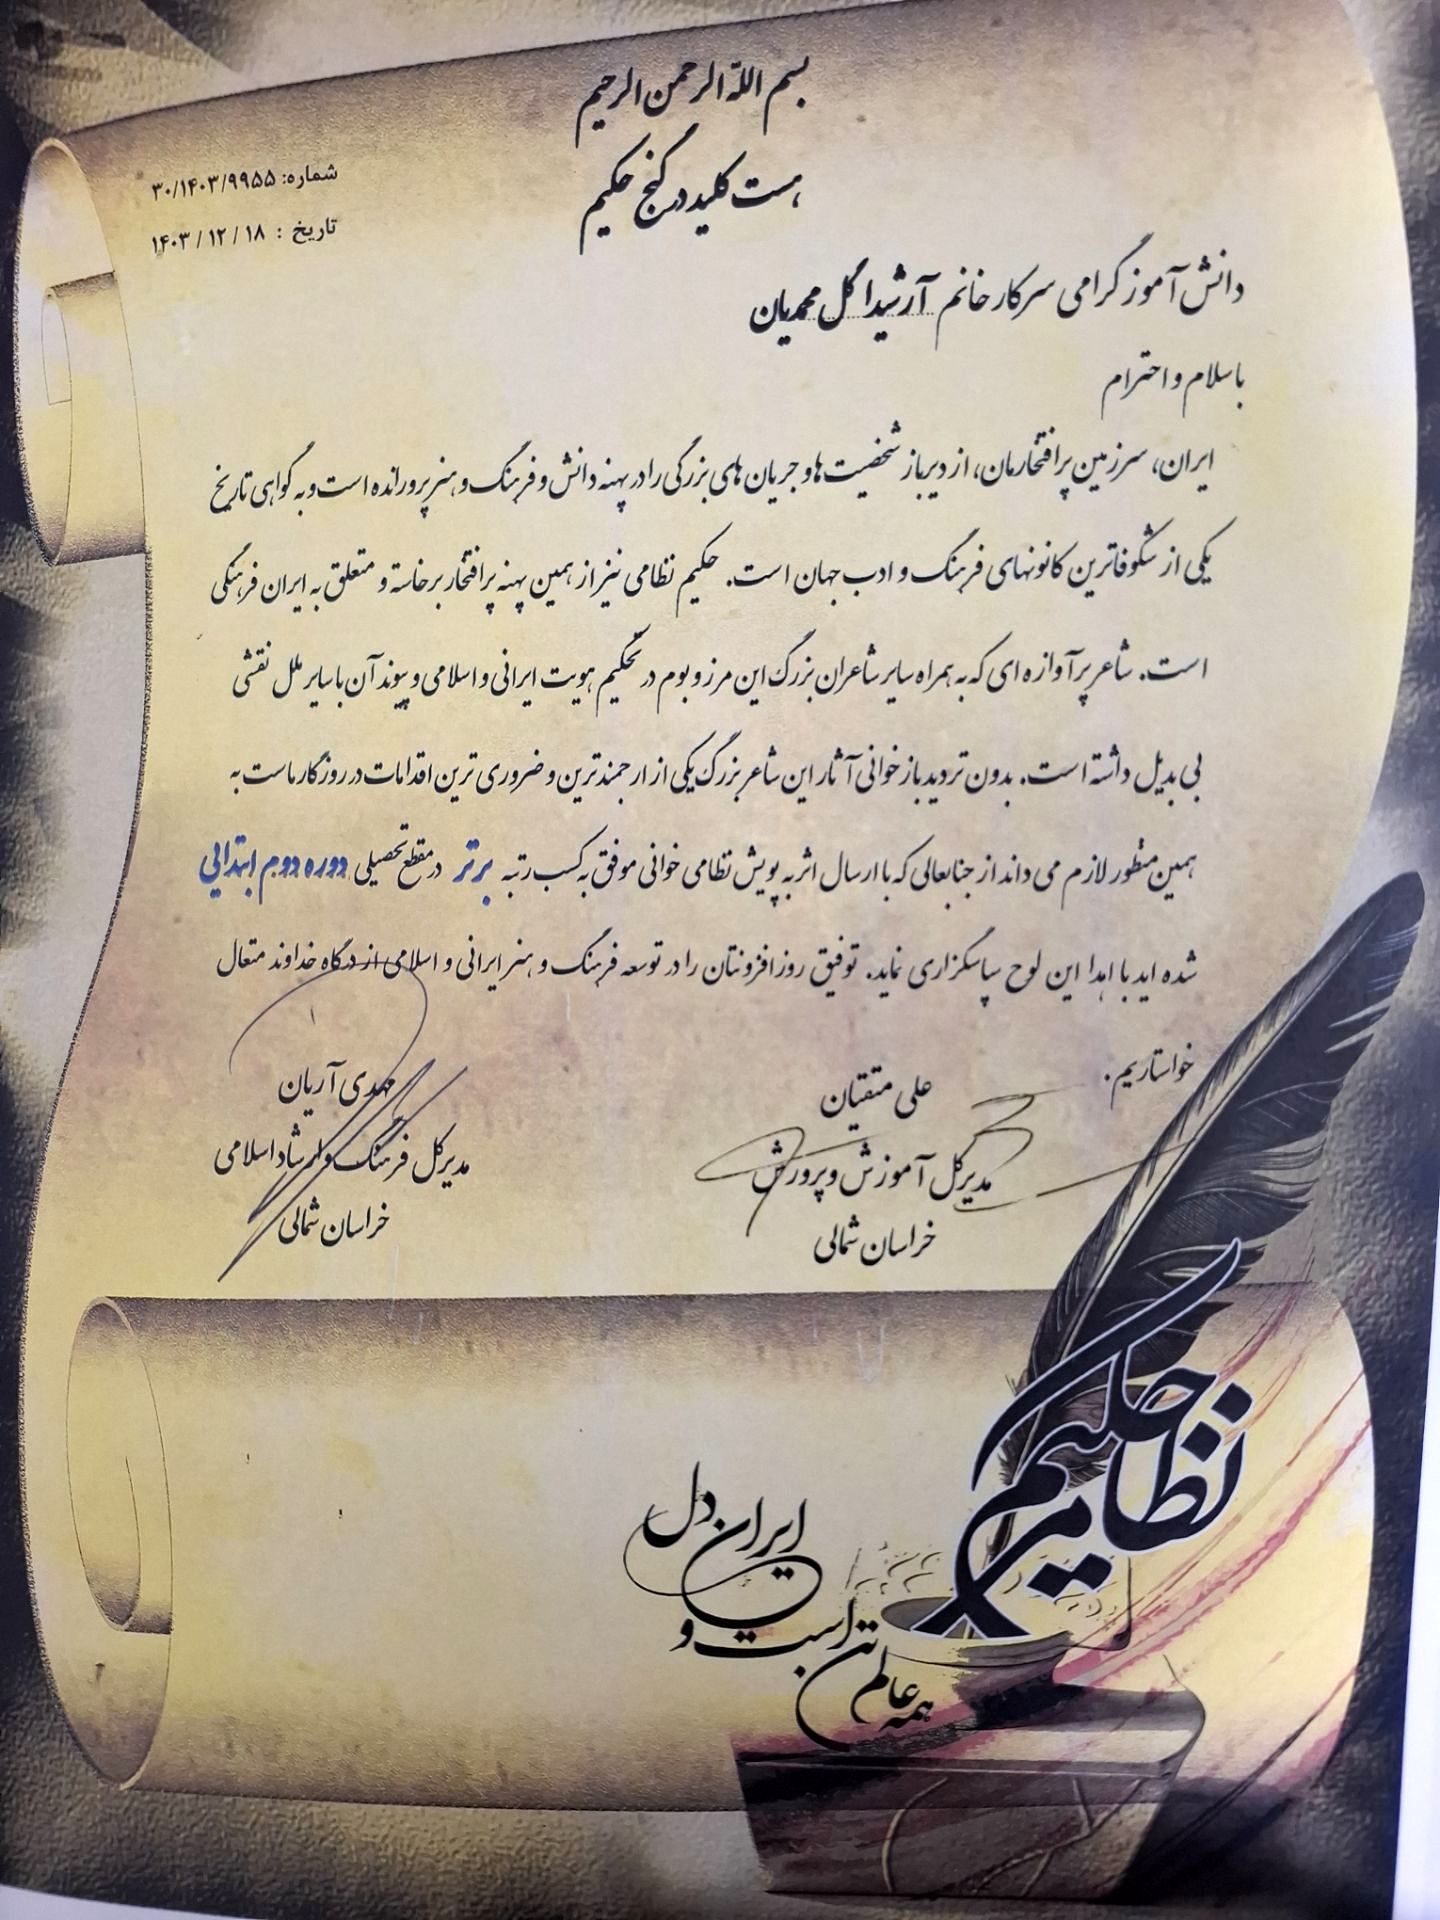 بسم الله الرحمن الرحیم
هست کلید در گنج حکیم
شماره: ۳۰/۱۴۰۳/۹۹۵۵
تاریخ : ۱۴۰۳/۱۲/۱۸
دانش آموز گرامی سرکار خانم آرشیدا گل محمدیان
با سلام و احترام
ایران، سرزمین پر افتخارمان، از دیرباز شخصیت ها و جریان های بزرگی را در پهنه دانش و فرهنگ و هنر پرورانده است و به گواهی تاریخ
یکی از شکوفاترین کانونهای فرهنگ و ادب جهان است. حکیم نظامی نیز از همین پهنه پر افتخار برخاسته و متعلق به ایران فرهنگی
است. شاعر پرآوازه ای که به همراه سایر شاعران بزرگ این مرز و بوم در تحکیم هویت ایرانی و اسلامی و پیوند آن با سایر ملل نقشی
بی بدیل داشته است. بدون تردید بازخوانی آثار این شاعر بزرگ یکی از ارجمندترین و ضروری ترین اقدامات در روزگار ماست به
همین منظور لازم می داند از جنابعالی که با ارسال اثر به پویش نظامی خوانی موفق به کسب رتبه برتر در مقطع تحصیلی دوره دوم ابتدایی
شده اید با اهدا این لوح سپاسگزاری نماید. توفیق روز افزونتان را در توسعه فرهنگ و هنر ایرانی و اسلامی از درگاه خداوند متعال
خواستاریم.
علی متقیان
مدیرکل آموزش و پرورش
خراسان شمالی
مهدی آریان
مدیرکل فرهنگ و ارشاد اسلامی
خراسان شمالی
حکیم
نظامی
همه عالم تن است و
ایران دل